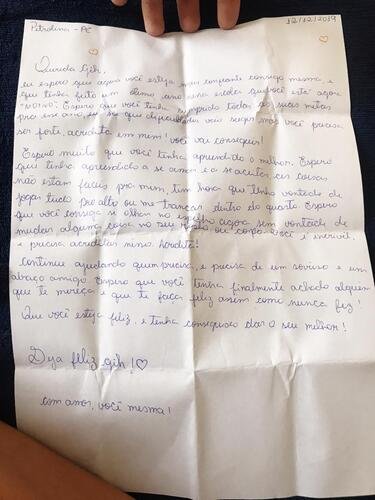 Petrolina - PE 12/12/2019
Querida Gih,
eu espero que agora você esteja mais confiante consigo mesma, e
que tenha feito um ótimo ano nessa escola que você está agora
"NOVO". Espero que você tenha cumprido todas as suas metas
pra esse ano, eu sei que dificuldades vais seguir mas você precisa
ser forte, acredita em mim! você vai conseguir!
Espero muito que você tenha aprendido o melhor. Espero
que tenha aprendido a se amar e a se aceitar, as coisas
não estam fáceis pra mim, tem hora que tenho vontade de
jogar tudo pro alto ou me trancar dentro do quarto. Espero
que você consiga se olhar no espelho agora sem vontade de
mudar alguma coisa no seu rosto ou corpo. você é incrível
e precisa acreditar nisso. Acredite!
Continue ajudando quem precisa, e precisa de um sorriso e um
abraço amigo. Espero que você tenha finalmente achado alguém
que te mereça e que te faça feliz assim como nunca fez!
Que você esteja feliz, e tenha conseguido dar o seu melhor!
Seja feliz gih!
com amor, você mesma!